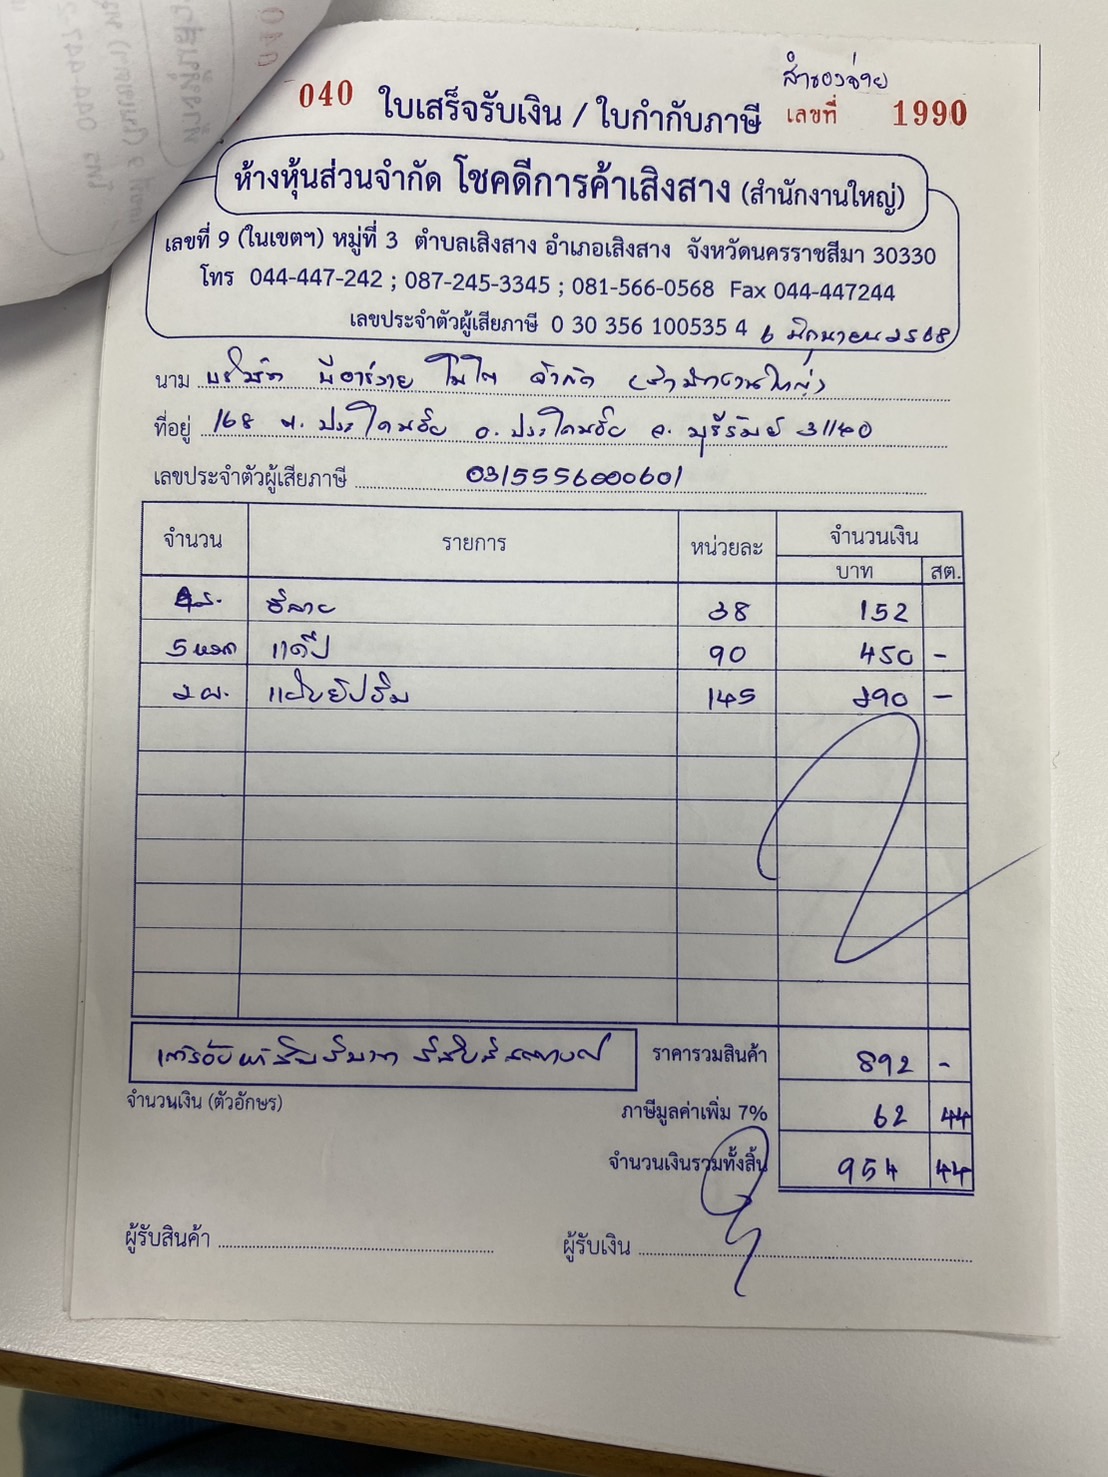 สำรองจ่าย
040 ใบเสร็จรับเงิน / ใบกำกับภาษี เลขที่ 1990
ห้างหุ้นส่วนจำกัด โชคดีการค้าเสิงสาง (สำนักงานใหญ่)
เลขที่ 9 (ในเขตฯ) หมู่ที่ 3 ตำบลเสิงสาง อำเภอเสิงสาง จังหวัดนครราชสีมา 30330
โทร 044-447-242 ; 087-245-3345 ; 081-566-0568 Fax 044-447244
เลขประจำตัวผู้เสียภาษี 0 30 356 100535 4 6 มิถุนายน 2568
นาม บริษัท พีอาร์วาย จำกัด (สำนักงานใหญ่)
ที่อยู่ 168 ต. ประโคนชัย อ. ประโคนชัย จ. บุรีรัมย์ 31140
เลขประจำตัวผู้เสียภาษี 0315556000601
จำนวน รายการ หน่วยละ จำนวนเงิน
บาท สต.
38 152
5 90 450 -
2 ผ. แผ่นยิปซัม 145 290 -
ราคารวมสินค้า 892 -
จำนวนเงิน (ตัวอักษร) ภาษีมูลค่าเพิ่ม 7% 62 44
จำนวนเงินรวมทั้งสิ้น 954 44
ผู้รับสินค้า ผู้รับเงิน